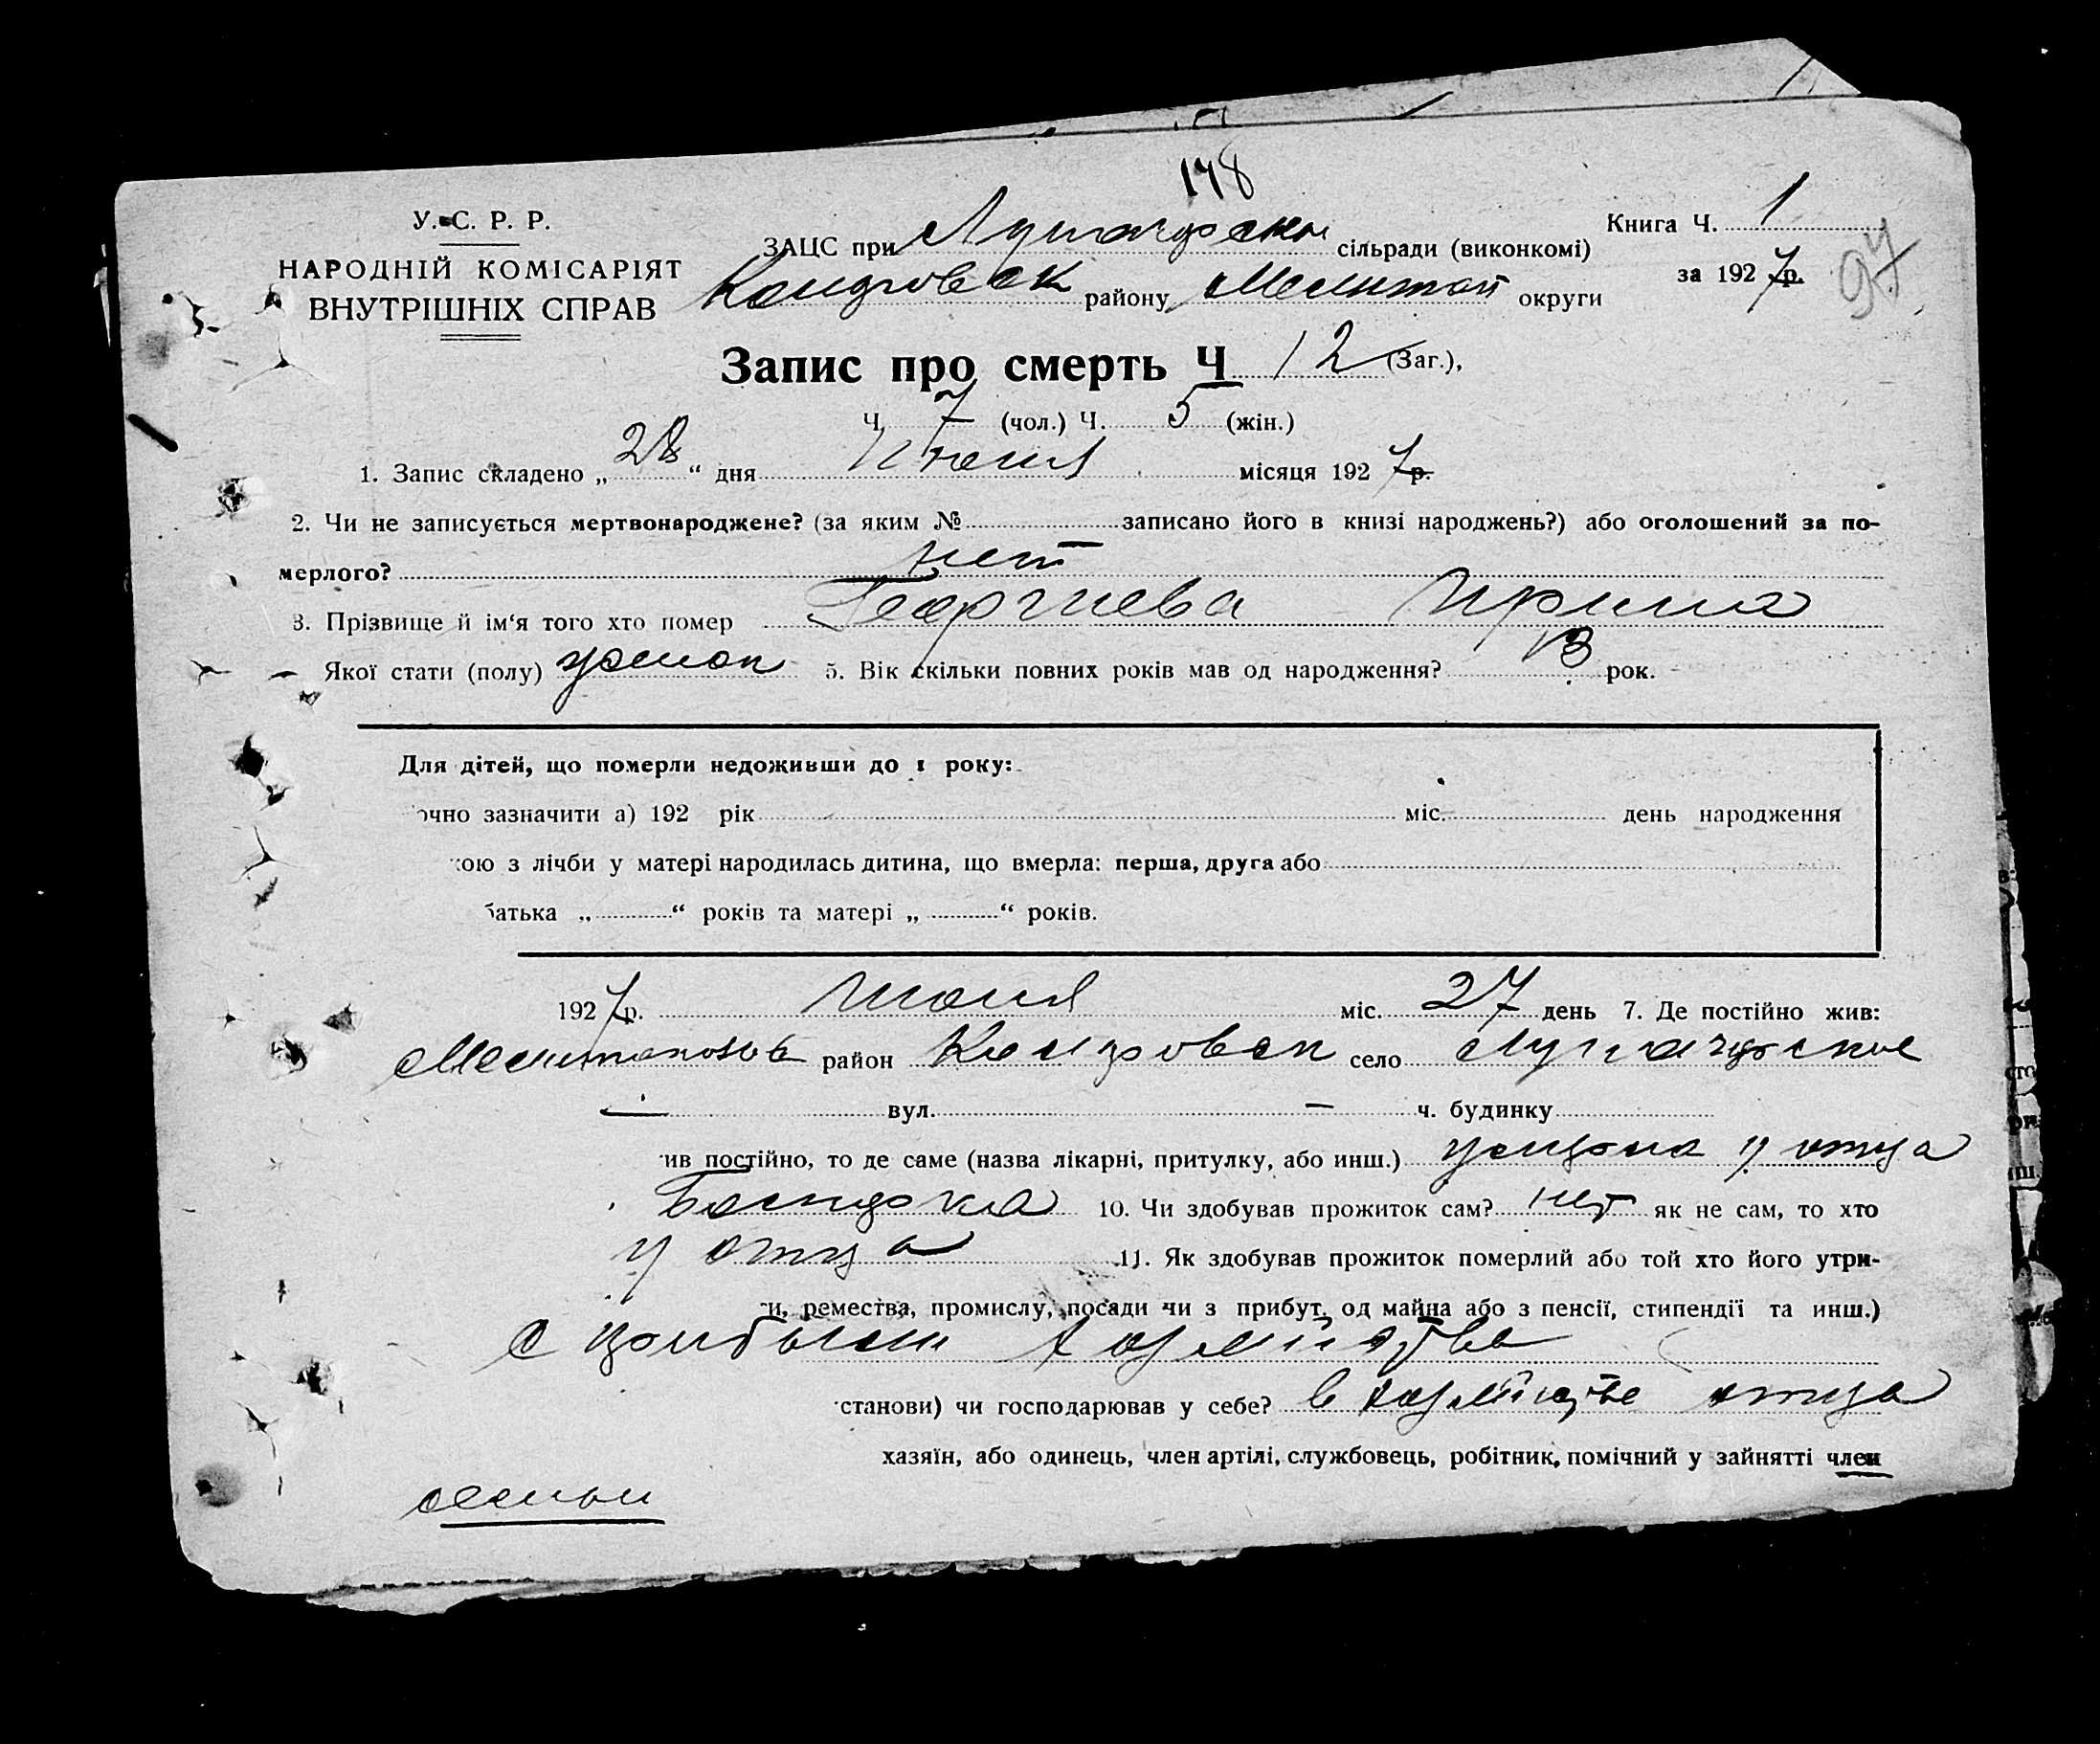 148
У. С. Р. Р.
НАРОДНІЙ КОМІСАРІЯТ
ВНУТРІШНІХ СПРАВ
ЗАЦС при сільради (виконкомі)
району Мелитоп округи
Книга Ч. 1
за 1927 р.
97
Запис про смерть Ч 12 (Заг.),
Ч. 7 (чол.) Ч. 5 (жін.)
1. Запис складено „28“ дня Июня місяця 1927 р.
2. Чи не записується мертвонароджене? (за яким № записано його в книзі народжень?) або оголошений за по-
мерлого? нет
3. Прізвище й ім‘я того хто помер Георгиева Ирина
Якої стати (полу) 5. Вік скільки повних років мав од народження? 13 рок.
Для дітей, що померли недоживши до 1 року:
очно зазначити а) 192 рік міс. день народження
кою з лічби у матері народилась дитина, що вмерла: перша, друга або
батька „ “ років та матері „ “ років.
1927 р. Июня міс. 27 день 7. Де постійно жив:
район село
— вул. — ч. будинку
ив постійно, то де саме (назва лікарні, притулку, або инш.) у отца
10. Чи здобував прожиток сам? нет як не сам, то хто
у отца 11. Як здобував прожиток померлий або той хто його утри-
и, ремества, промислу, посади чи з прибут. од майна або з пенсії, стипендії та инш.)
с
станови) чи господарював у себе? в отца
хазяїн, або одинець, член артілі, службовець, робітник, помічний у зайнятті член
семьи